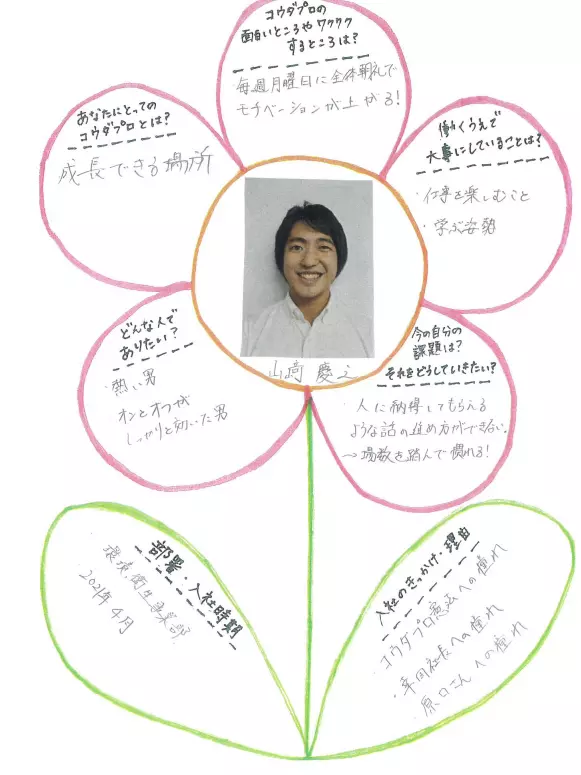 コウダプロの
面白いところやワクワク
するところは?
毎週月曜日に全体朝礼で
モチベーションが上がる!
あなたにとっての
コウダプロとは?
成長できる場所
働くうえで
大事にしていることは?
・仕事を楽しむこと
・学ぶ姿勢
山﨑 慶之
どんな人で
ありたい?
・熱い男
オンとオフが
しっかりと効いた男
今の自分の
課題は?
それをどうしていきたい?
・人に納得してもらえる
ような話の進め方ができない。
→場数を踏んで慣れる!
部署・入社時期
環境衛生事業部
2021年4月
入社のきっかけ・理由
・コウダプロ憲法への憧れ
・幸田社長への憧れ
・原口さんへの憧れ